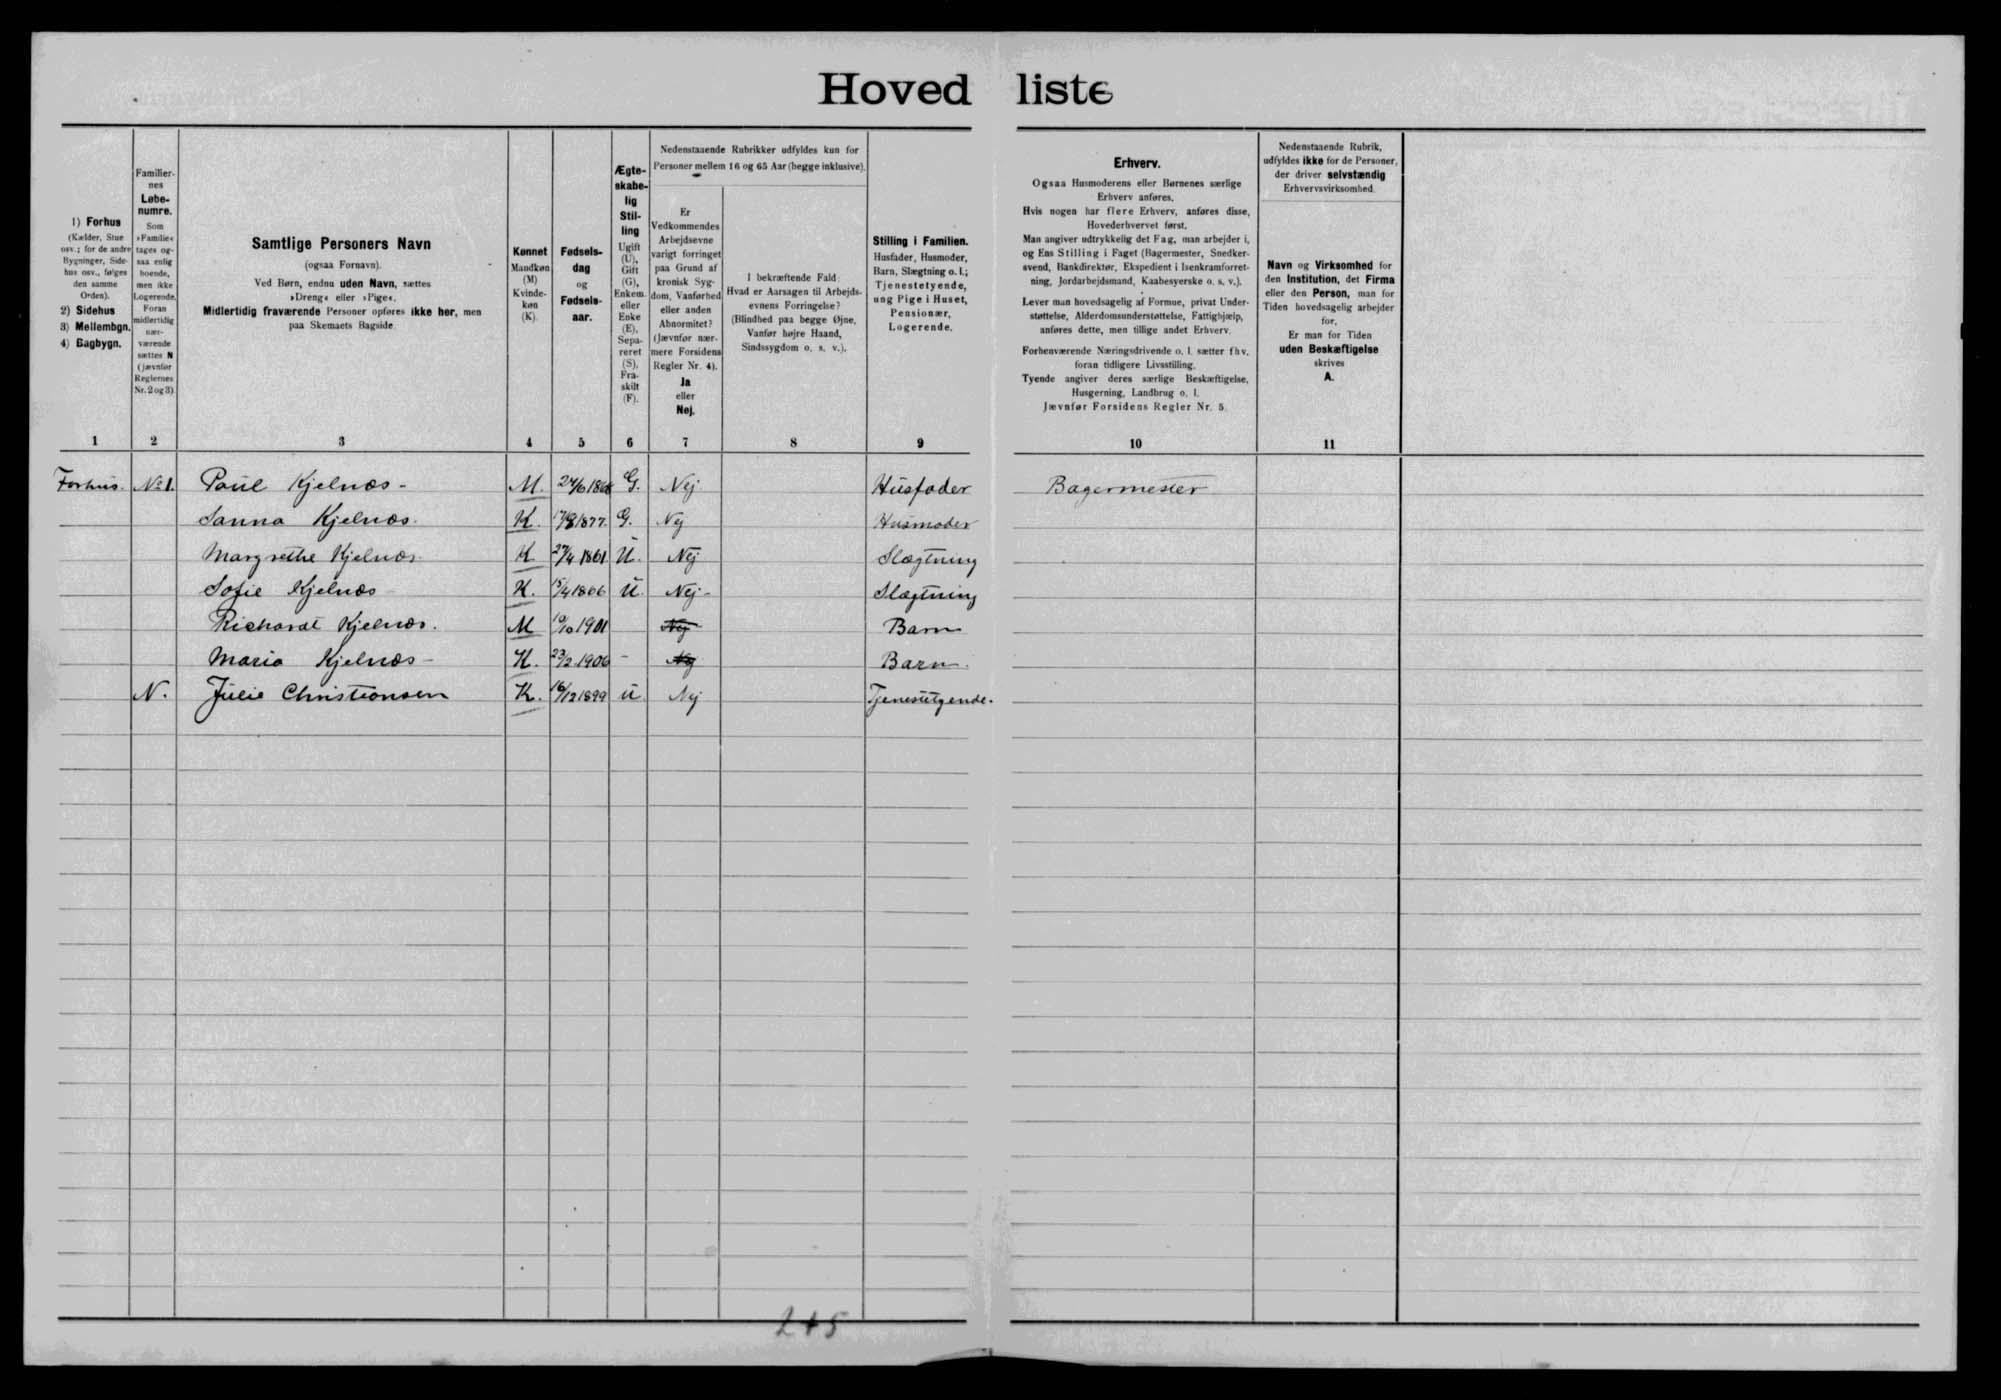 Hovedliste
1) Forhus
(Kælder, Stue
osv.; for de andre
Bygninger, Side-
hus osv., følges
den samme
Orden).
2) Sidehus
3) Mellembgn.
4) Bagbygn.
Familier-
nes
Løbe-
numre.
Som
»Familie«
tages og-
saa enlig
boende,
men ikke
Logerende.
Foran
midlertidig
nær-
værende
sættes N
(jævnfør
Reglernes
Nr. 2 og 3).
Samtlige Personers Navn
(ogsaa Fornavn).
Ved Børn, endnu uden Navn, sættes
»Dreng« eller »Pige«.
Midlertidig fraværende Personer opføres ikke her, men
paa Skemaets Bagside.
Kønnet
Mandkøn
(M)
Kvinde-
køn
(K).
Fødsels-
dag
og
Fødsels-
aar.
Ægte-
skabe-
lig
Stil-
ling
Ugift
(U),
Gift
(G),
Enkem.
eller
Enke
(E),
Sepa-
reret
(S),
Fra-
skilt
(F).
Nedenstaaende Rubrikker udfyldes kun for
Personer mellem 16 og 65 Aar (begge inklusive).
Er
Vedkommendes
Arbejdsevne
varigt forringet
paa Grund af
kronisk Syg-
dom, Vanførhed
eller anden
Abnormitet?
(Jævnfør nær-
mere Forsidens
Regler Nr. 4).
Ja
eller
Nej.
I bekræftende Fald:
Hvad er Aarsagen til Arbejds-
evnens Forringelse?
(Blindhed paa begge Øjne,
Vanfør højre Haand,
Sindssygdom o. s. v.).
Stilling i Familien.
Husfader, Husmoder,
Barn, Slægtning o. l.;
Tjenestetyende,
ung Pige i Huset,
Pensionær,
Logerende.
Erhverv.
Ogsaa Husmoderens eller Børnenes særlige
Erhverv anføres.
Hvis nogen har flere Erhverv, anføres disse,
Hovederhvervet først.
Man angiver udtrykkelig det Fag, man arbejder i,
og Ens Stilling i Faget (Bagermester, Snedker-
svend, Bankdirektør, Ekspedient i Isenkramforret-
ning, Jordarbejdsmand, Kaabesyerske o. s. v.).
Lever man hovedsagelig af Formue, privat Under-
støttelse, Alderdomsunderstøttelse, Fattighjælp,
anføres dette, men tillige andet Erhverv.
Forhenværende Næringsdrivende o. l. sætter fhv.
foran tidligere Livsstilling.
Tyende angiver deres særlige Beskæftigelse,
Husgerning, Landbrug o. l.
Jævnfør Forsidens Regler Nr. 5.
Nedenstaaende Rubrik,
udfyldes ikke for de Personer,
der driver selvstændig
Erhvervsvirksomhed.
Navn og Virksomhed for
den Institution, det Firma
eller den Person, man for
Tiden hovedsagelig arbejder
for.
Er man for Tiden
uden Beskæftigelse
skrives
A.
1 2 3 4 5 6 7 8 9 10 11
Forhus. No 1. Paul Kjelnæs - M. G. Nej Husfader Bagermester
Sanna Kjelnæs. K. 17/8 1877. G. Nej Husmoder
Margrethe Kjelnæs. K 27/4 1861. U. Nej Slægtning
Sofie Kjelnæs K. 15/4 1866 U. Nej- Slægtning
Richardt Kjelnæs. M 10/10 1901 Nej Barn
Maria Kjelnæs - K. 23/2 1906 - Nej Barn.
N. Julie Christiansen K. 16/12 1899 U Nej Tjenestetyende.
245